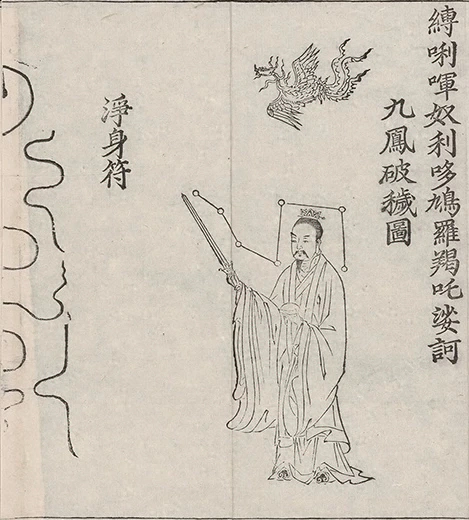 縛唎喗奴利哆鳩羅羯吒娑訶
九鳳破穢圖
淨身符